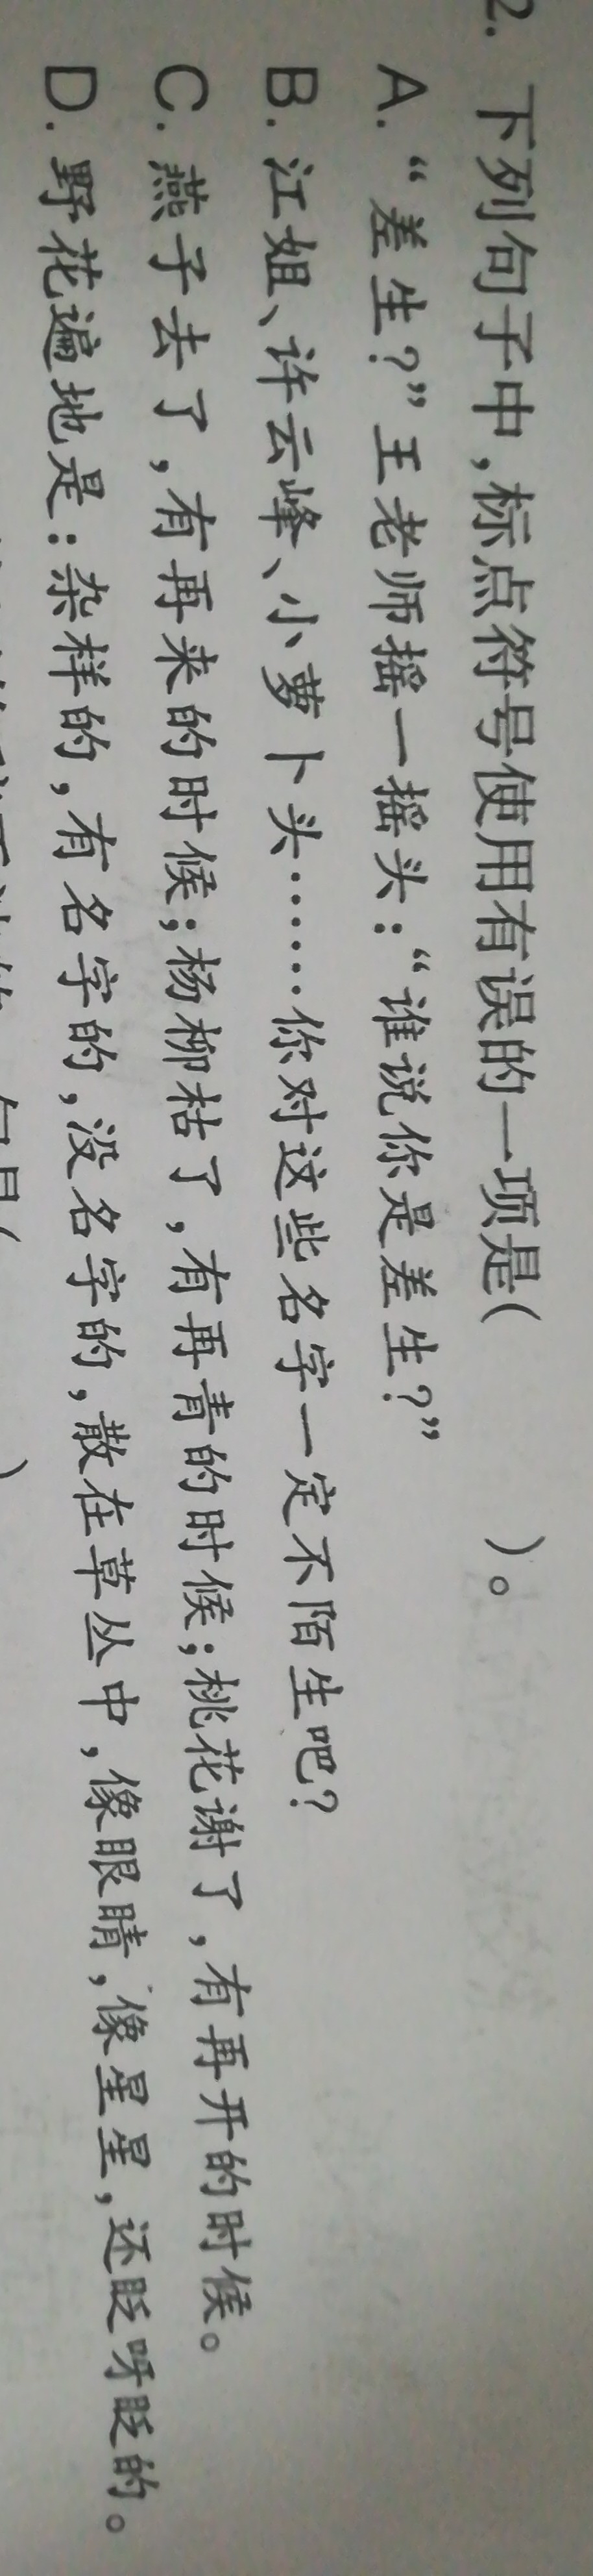 2. 下列句子中,标点符号使用有误的一项是( )。
A.“差生?”王老师摇一摇头:“谁说你是差生?”
B.江姐、许云峰、小萝卜头……你对这些名字一定不陌生吧?
C.燕子去了,有再来的时候;杨柳枯了,有再青的时候;桃花谢了,有再开的时候。
D.野花遍地是:杂样的,有名字的,没名字的,散在草丛中,像眼睛,像星星,还眨呀眨的。